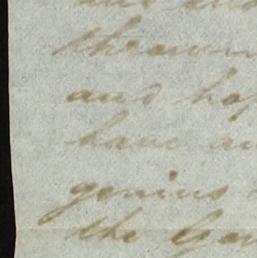 and
thrown
and hop
have an
genius
the Gov